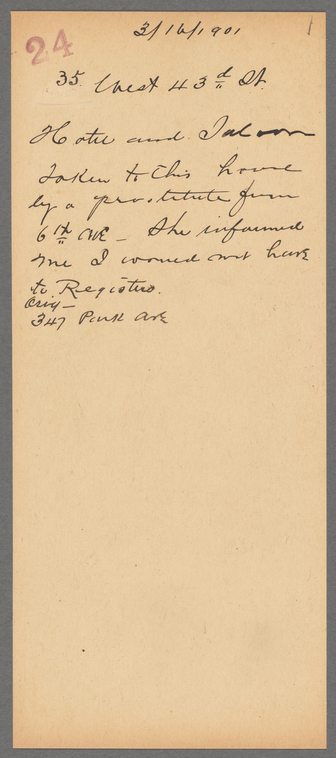 3/16/1901
24
35 West 43d St.
Hotel and Saloon
Taken to this house
by a prostitute from
6th Ave - She informed
me I would not have
to Register.
347 Park Ave